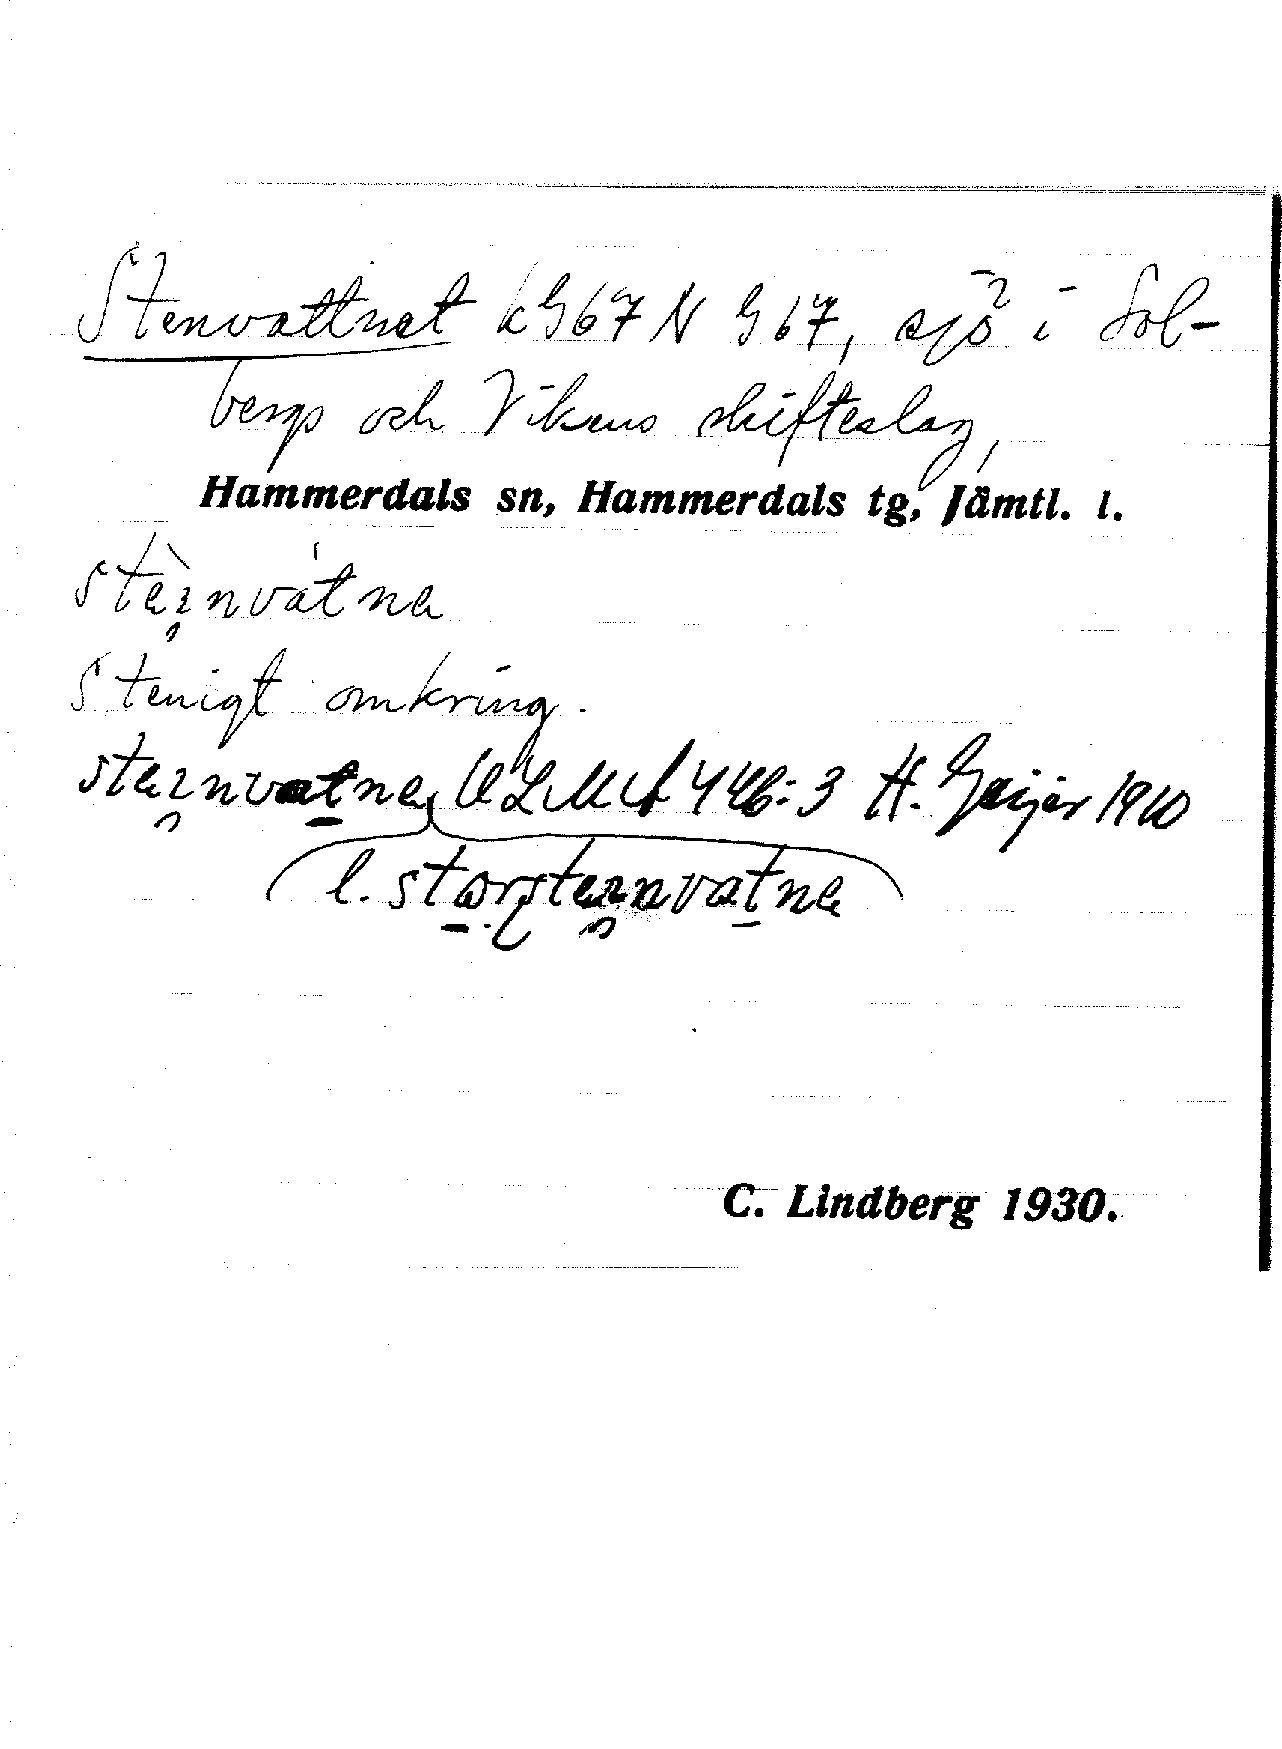 Stenvattnet k G67 N G67, sjö i Sol-
bergs och Vikens skifteslag,
Hammerdals sn, Hammerdals tg, Jämtl. l.
stenvatne
Stenigt omkring.
stenvatne, ULMA 446:3 H. Geijer 1910
(l. storstenvatne)
C. Lindberg 1930.